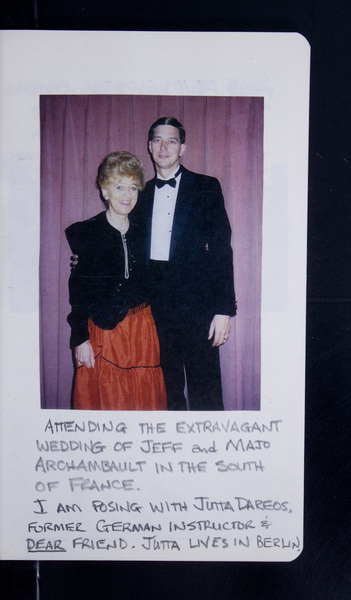 ATTENDING THE EXTRAVAGANT
WEDDING OF JEFF and MAJO
ARCHAMBAULT IN THE SOUTH
OF FRANCE.
I AM POSING WITH JUTTA DAREOS,
FORMER GERMAN INSTRUCTOR &
DEAR FRIEND. JUTTA LIVES IN BERLIN